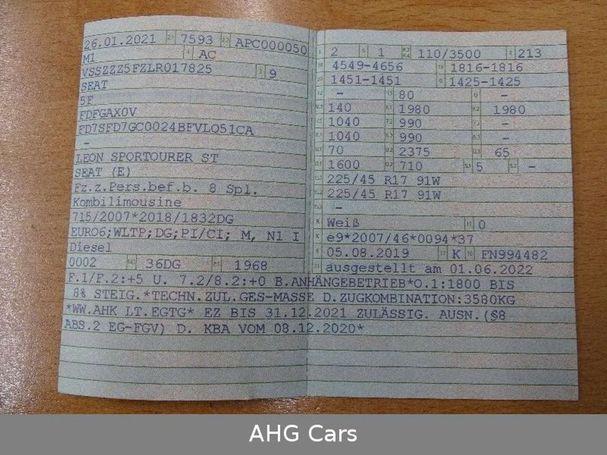 26.01.2021 7593 APC000050
M1 AC
VSSZZZ5FZLR017825 9
SEAT
5F
FDFGAX0V
FD7SFD7GC0024BFVLO51CA
-
LEON SPORTOURER ST
SEAT (E)
Fz.z.Pers.bef.b. 8 Spl.
Kombilimousine
715/2007*2018/1832DG
EURO6;WLTP;DG;PI/CI; M, N1 I
Diesel
0002 36DG 1968
2 1 110/3500 213
4549-4656 1816-1816
1451-1451 1425-1425
- 80 -
140 1980 1980
1040 990 -
1040 990 -
70 2375 65
1600 710 5 -
225/45 R17 91W
225/45 R17 91W
-
Weiß 0
e9*2007/46*0094*37
05.08.2019 K FN994482
ausgestellt am 01.06.2022
F.1/F.2:+5 U. 7.2/8.2:+0 B.ANHÄNGEBETRIEB*O.1:1800 BIS
8% STEIG.*TECHN.ZUL.GES-MASSE D.ZUGKOMBINATION:3580KG
*WW.AHK LT.EGTG* EZ BIS 31.12.2021 ZULÄSSIG. AUSN.(§8
ABS.2 EG-FGV) D. KBA VOM 08.12.2020*
AHG Cars